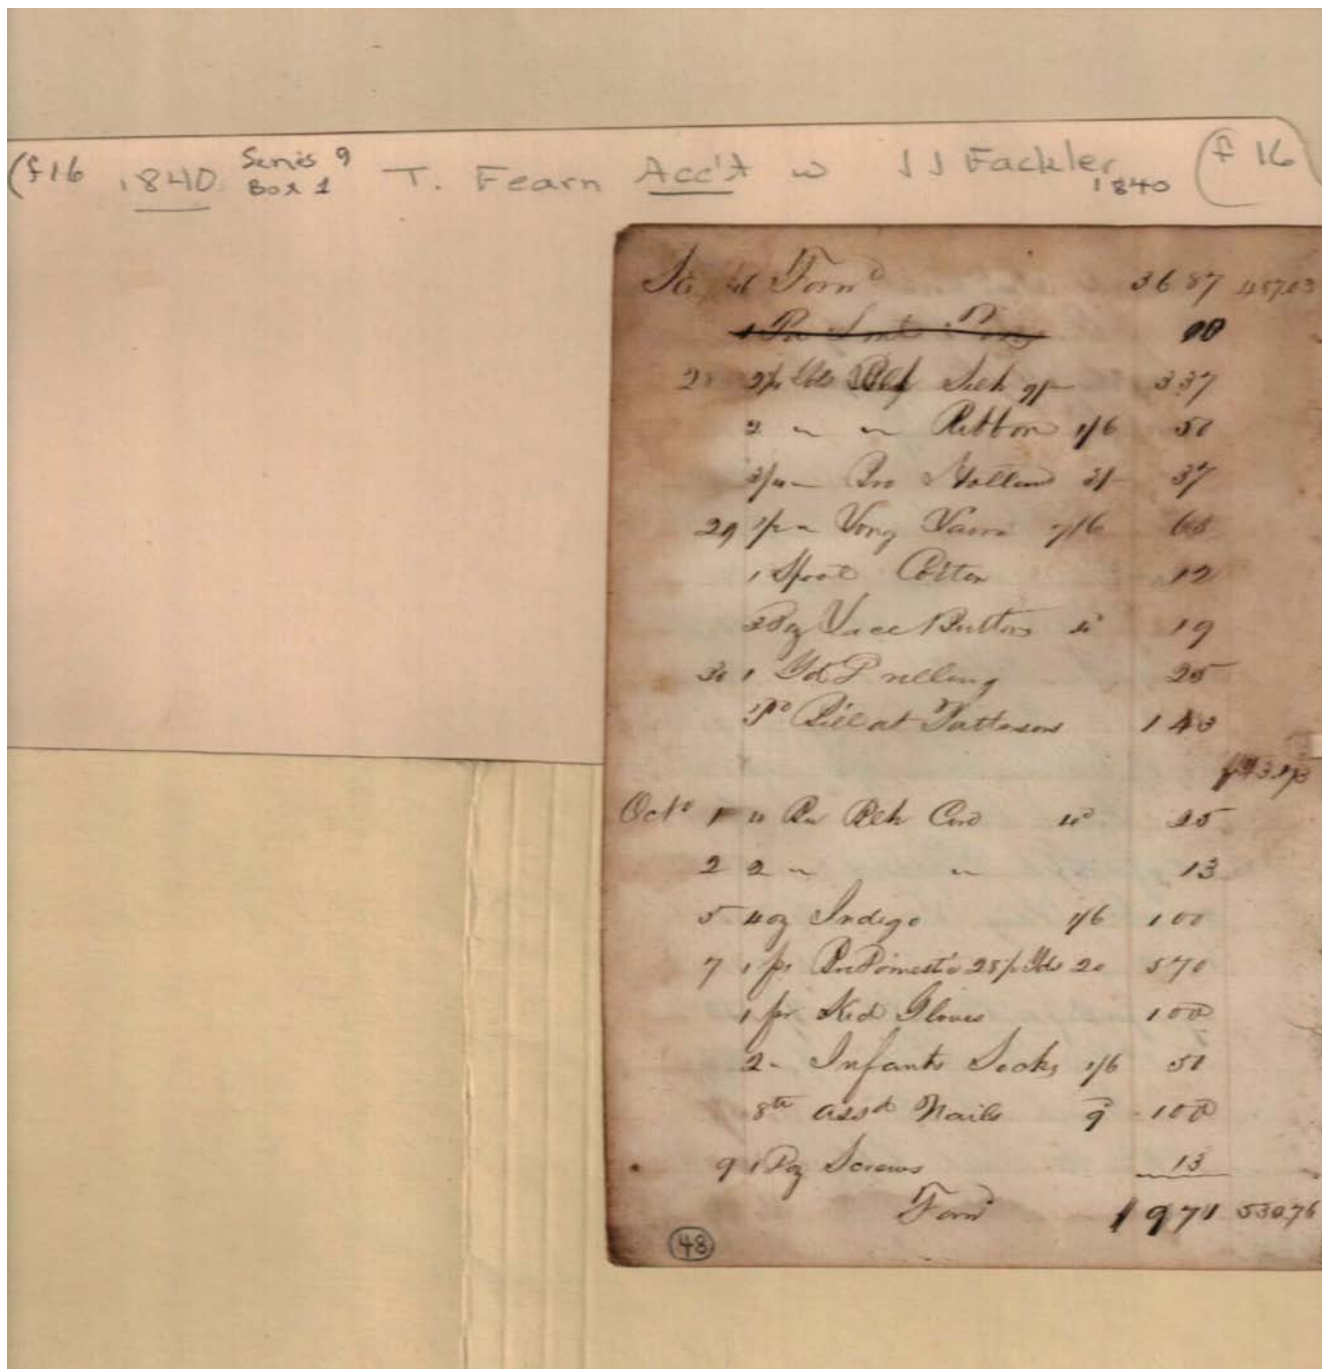 (f16 1840 Series 9 Box 1 T. Fearn Acc't w J J Fackler 1840 (f 16
Forwd 36 87 457.03
28 Yds Blk Silk 9/- 3 37
2 " " Ribbon 1/6 50
3/4 " Bro Holland 3/- 37
29 1/2 " Yarn 7/6 63
1 Spool Cotton 12
3 Doz Lace Buttons 4d 19
30 1 Yd 25
Pd Bill at Pattersons 1 43
Octo 1 4 Blk Cord 4d 25
2 2 " " 13
5 4 oz Indigo 1/6 1 00
7 1 ps Bro Domestic 28 1/2 Yds 20 5 70
1 pr Kid Gloves 1 00
2 " Infants Socks 1/6 50
8 lb assd Nails 9d 1 00
9 1 Doz Screws 13
Forwd 9 71 530.76
48